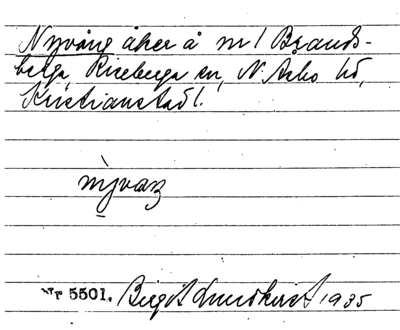 Nyvång åker å n/1 Brands-
berga, Riseberga sn, N. Åsbo hd,
Kristianstad l.
Nr 5501. Birgit Lundkvist 1935